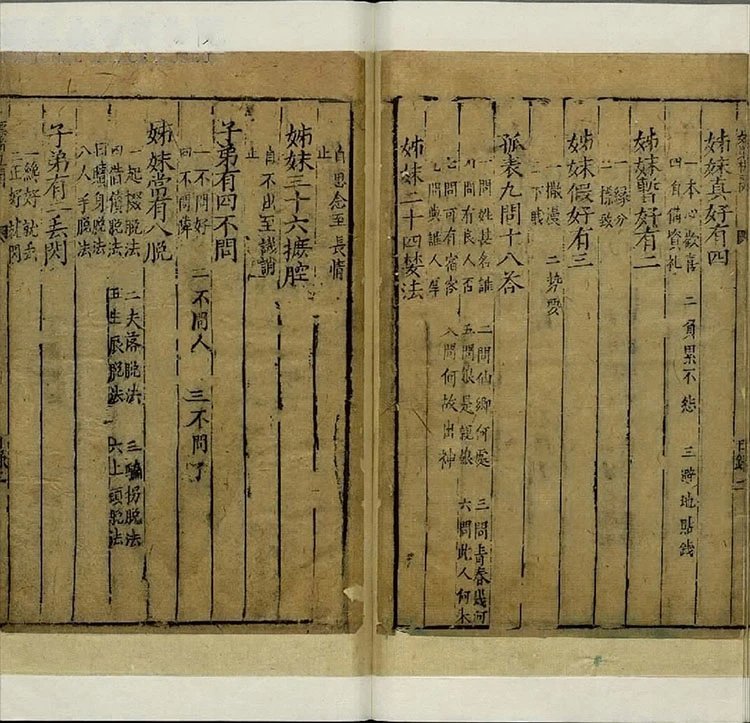 姊妹真好有四
一本心歡喜 二負累不愁 三時地貼錢
四自備資礼
姊妹暫好有二
一緣分
二標致
姊妹假好有三
一撒漫 二勢要
三下賤
孤表九問十八答
一問姓甚名誰 二問仙鄉何處 三問青春幾何
四問有良人否 五問娘是親娘 六問此人何木
七問可有宿客 八問何故出神
九問與誰人厚
姊妹二十四婪法
自思念至長情
止
姊妹三十六 腔
自不出至譏誚
止
子弟有四不問
一不問好 二不問人 三不問了
四不問 
姊妹當有八脫
一起掇脫法 二夫落脫法 三騙拐脫法
四借債脫法 五生辰脫法 六上頭脫法
七贖身脫法
八人手脫法
子弟有二丟閃
一絶好就丢
二正好討閃